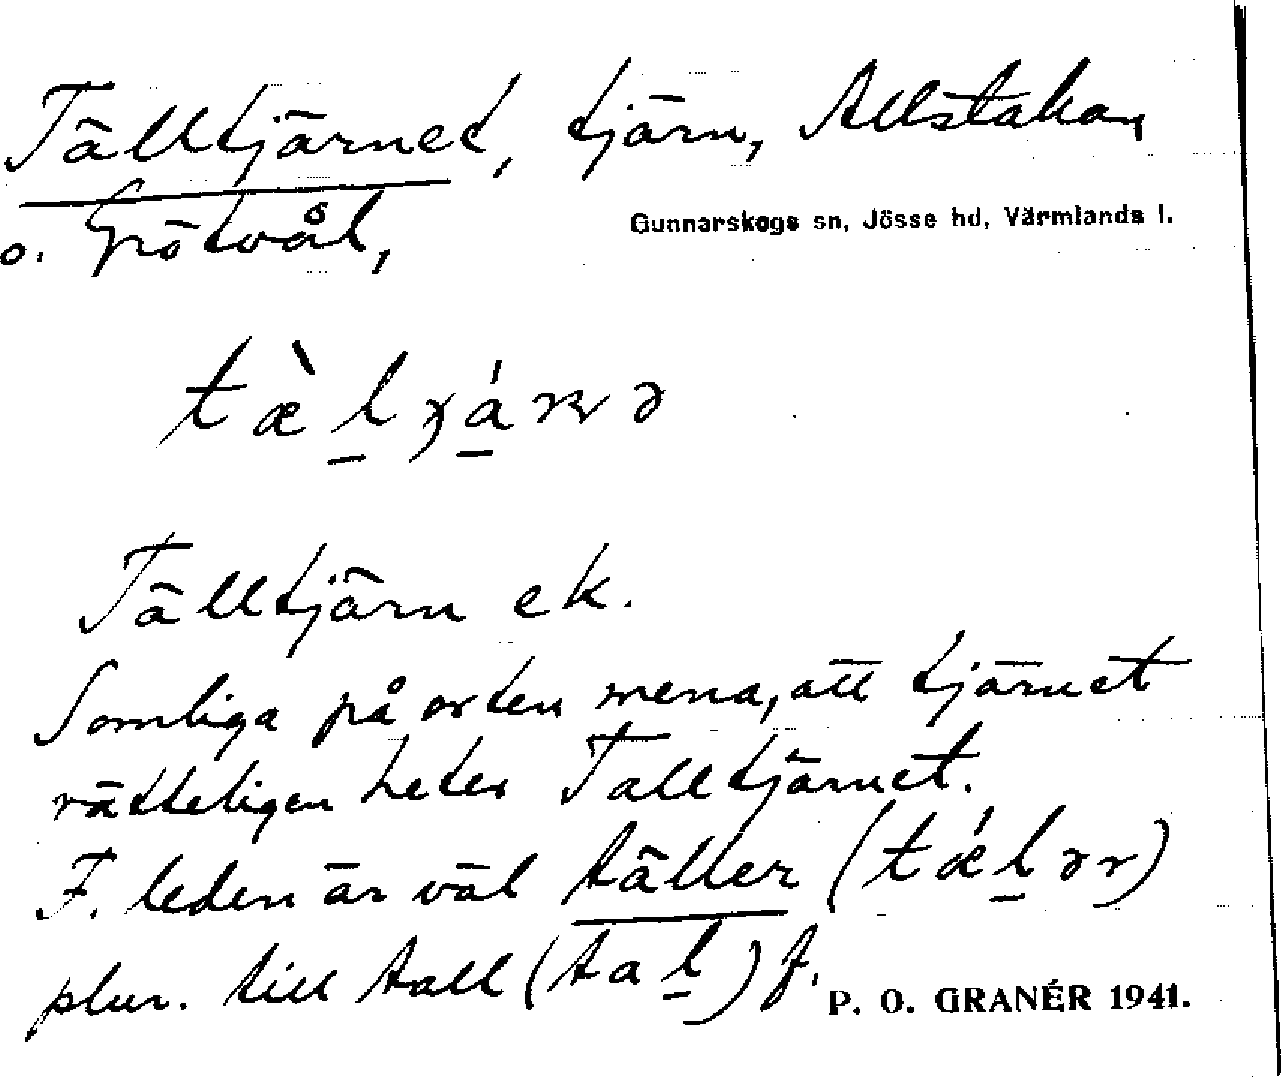 Tälltjärnet, tjärn, Allstakan
o. Grötvål,
Gunnarskogs sn, Jösse hd, Värmlands l.
Tälltjärn ek.
Somliga på orten mena, att tjärnet
rätteligen heter Talltjärnet.
F. leden är väl täller (tǽl̲ər)
plur. till tall (tal̲) f.
P. O. GRANÉR 1941.